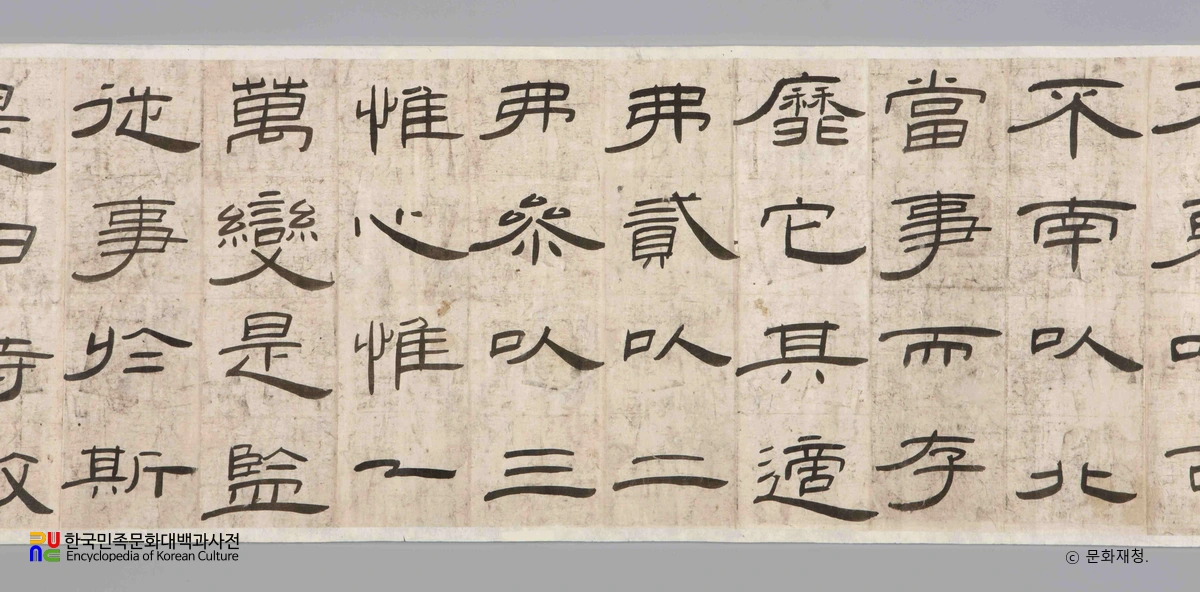 不南以北
當事而存
靡它其適
弗貳以二
弗參以三
惟心惟一
萬變是監
從事於斯
한국민족문화대백과사전
Encyclopedia of Korean Culture
ⓒ 문화재청.